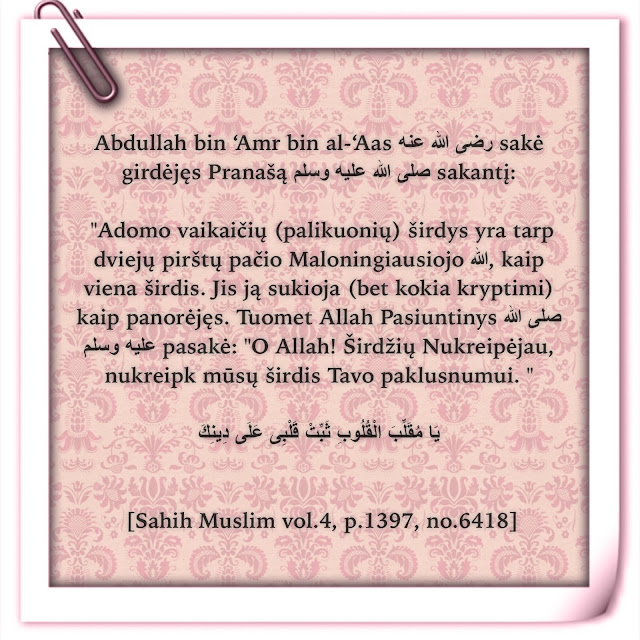 Abdullah bin ‘Amr bin al-‘Aas رضى الله عنه sakė
girdėjęs Pranašą صلى الله عليه وسلم sakantį:
"Adomo vaikaičių (palikuonių) širdys yra tarp
dviejų pirštų pačio Maloningiausiojo الله, kaip
viena širdis. Jis ją sukioja (bet kokia kryptimi)
kaip panorėjęs. Tuomet Allah Pasiuntinys صلى الله
عليه وسلم pasakė: "O Allah! Širdžių Nukreipėjau,
nukreipk mūsų širdis Tavo paklusnumui. "
يَا مُقَلِّبَ الْقُلُوبِ ثَبِّتْ قَلْبِى عَلَى دِينِكَ
[Sahih Muslim vol.4, p.1397, no.6418]